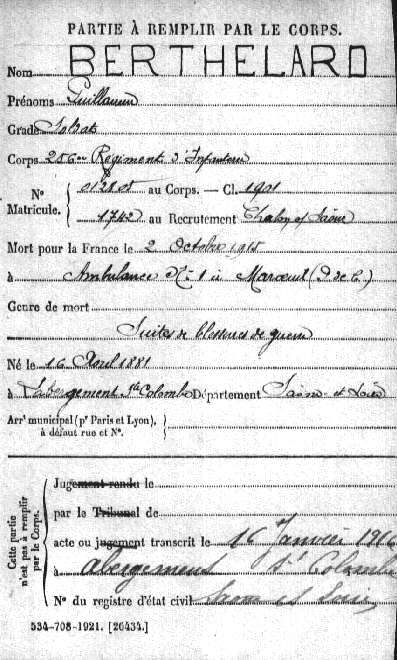 PARTIE À REMPLIR PAR LE CORPS.
Nom BERTHELARD
Prénoms Guillaume
Grade Soldat
Corps 256me Régiment d'Infanterie
N° Matricule. { 012105 au Corps. — Cl. 1901
1742 au Recrutement Chalon s/ Saône
Mort pour la France le 2 Octobre 1915
à Ambulance N° 1 à Maroeuil (P. de C.)
Genre de mort
Suites de blessures de guerre
Né le 16 Avril 1881
à L'abergement Ste Colombe Département Saône et Loire
Arrt municipal (pr Paris et Lyon), à défaut rue et N°. }
Cette partie n'est pas à remplir par le Corps.
Jugement rendu le
par le Tribunal de
acte ou jugement transcrit le 16 Janvier 1916
à abergement Ste Colombe
N° du registre d'état civil Saone et Loire
534-708-1921. [26434.]